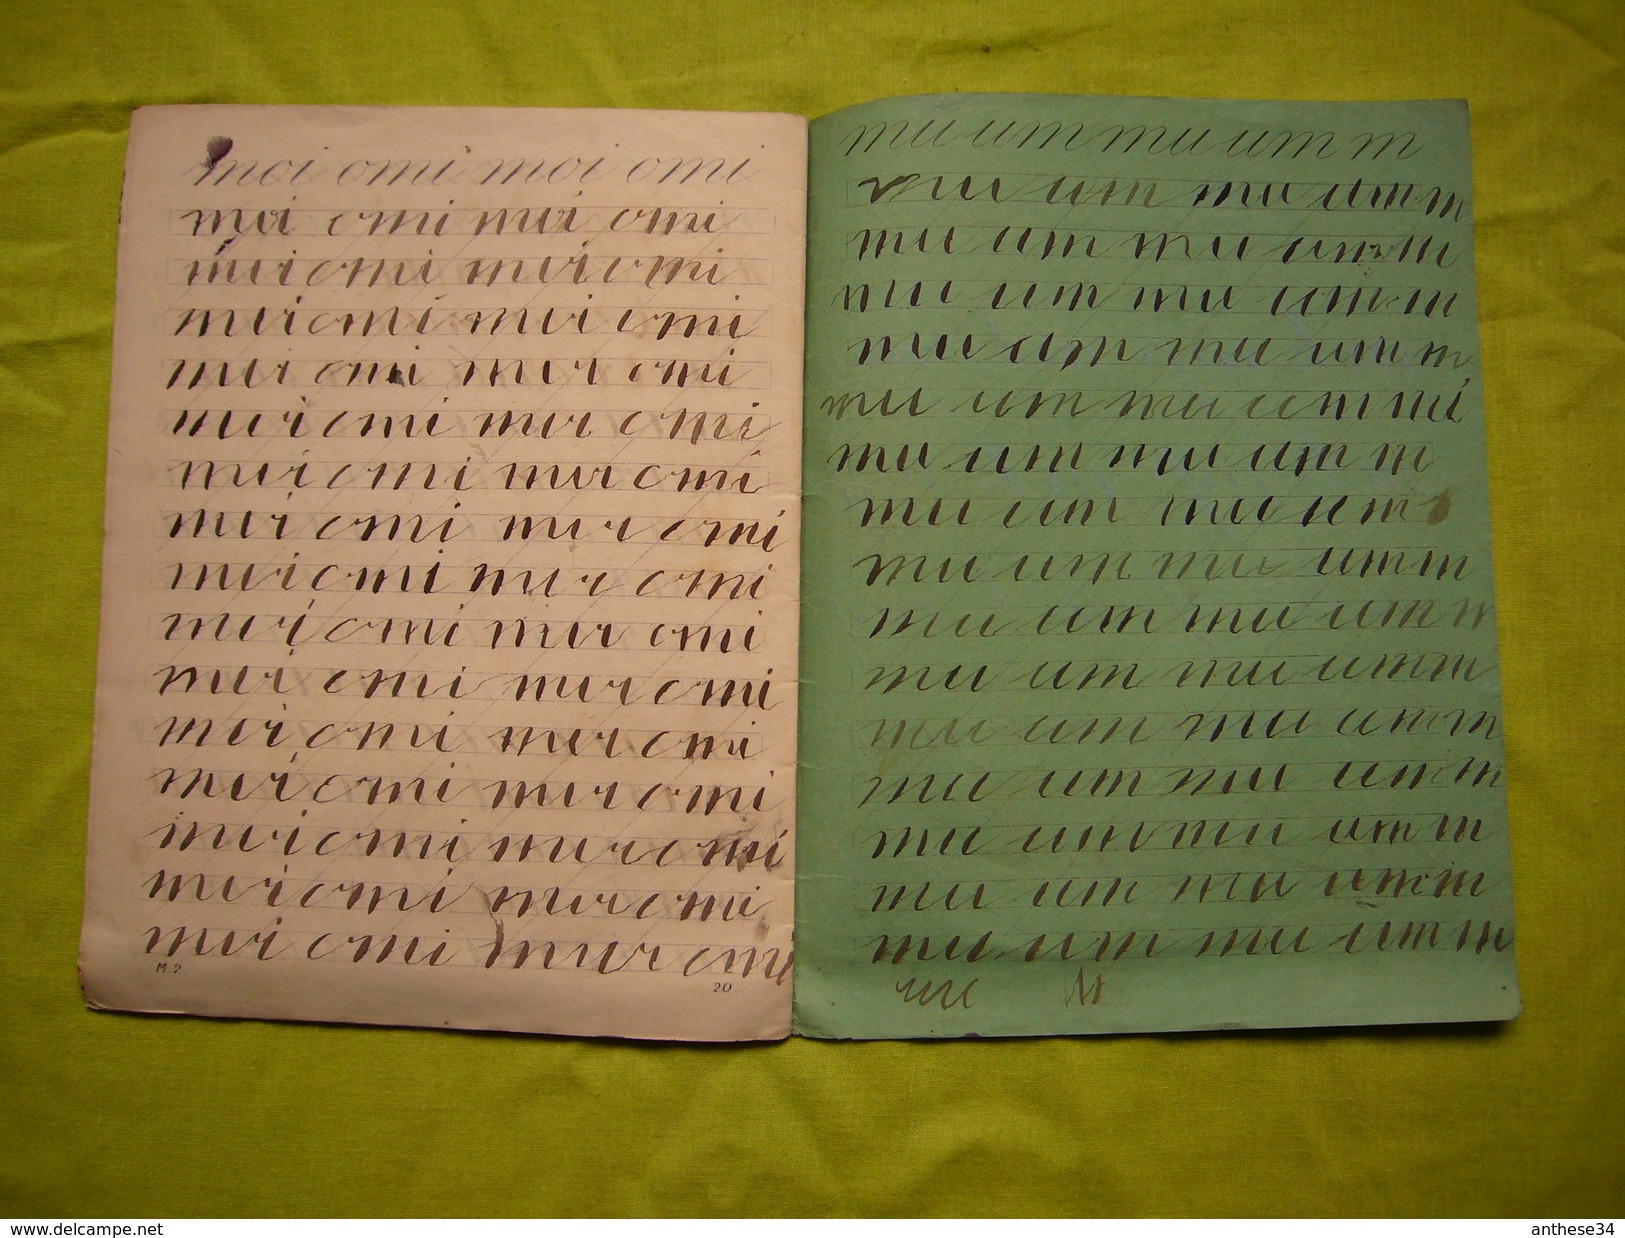 moi omi moi omi
moi omi moi omi
moi omi moi omi
moi omi moi omi
moi omi moi omi
moi omi moi omi
moi omi moi omi
moi omi moi omi
moi omi moi omi
moi omi moi omi
moi omi moi omi
moi omi moi omi
moi omi moi omi
moi omi moi omi
moi omi moi omi
moi omi moi omi
M. 2
20.
mu um mu um m
mu um mu um m
mu um mu um m
mu um mu um m
mu um mu um m
mu um mu um mi
mu um mu um m
mu um mu um
mu um mu um m
mu um mu um m
mu um mu um m
mu um mu um m
mu um mu um m
mu um mu um m
mu um mu um m
mu um mu um m
www.delcampe.net
anthese34